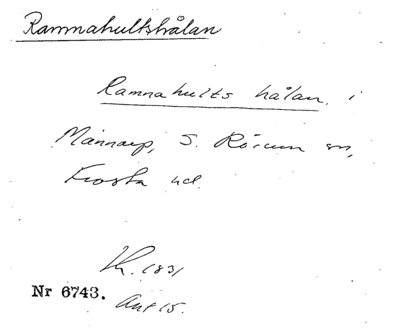 Rammahultshålan
Ramna hults hålan i
Månnarp, S. Rörum sn,
Frosta hd.
Kh. 1831
Nr 6743. Ant 15.